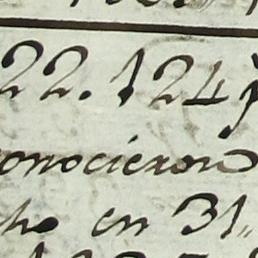 22.124
onocieron
ho en 31,,